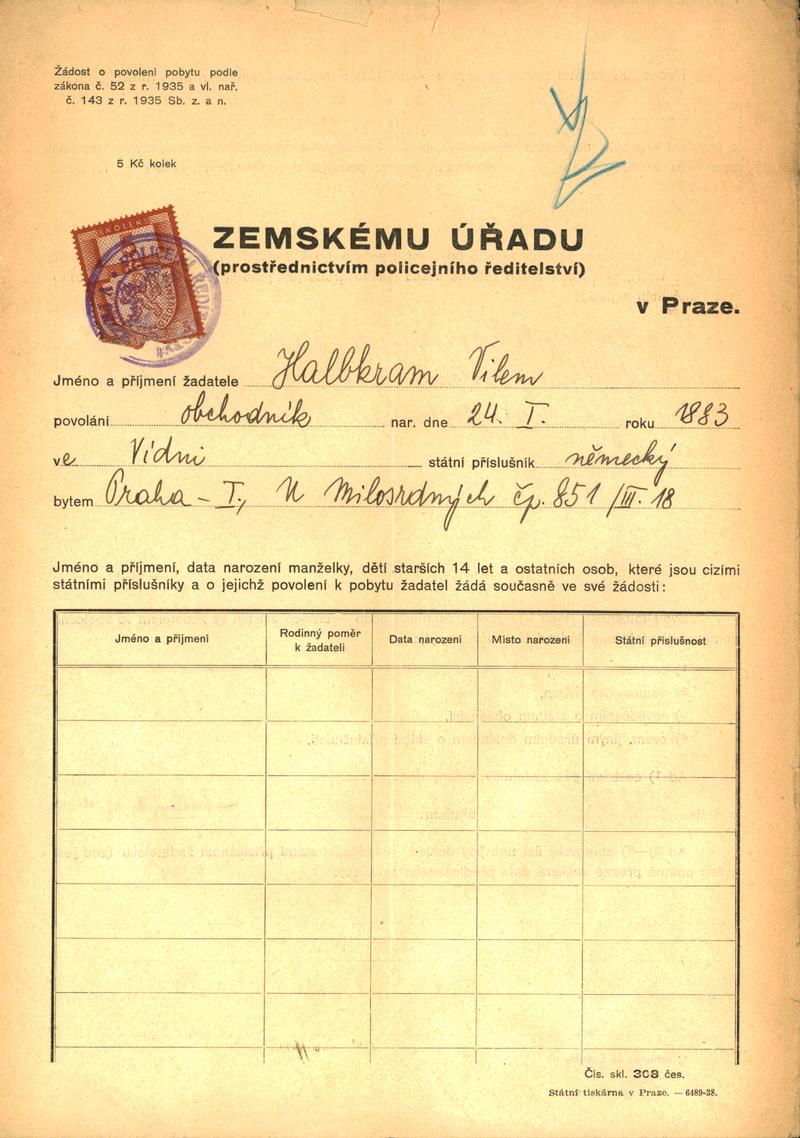 Žádost o povolení pobytu podle
zákona č. 52 z r. 1935 a vl. nař.
č. 143 z r. 1935 Sb. z. a n.
5 Kč kolek
ZEMSKÉMU ÚŘADU
(prostřednictvím policejního ředitelství)
v Praze.
Jméno a příjmení žadatele Halbkram Vilem
povolání obchodník nar. dne 24. I. roku 1883
ve Vídni státní příslušník německý
bytem Praha - I., U Milosrdných čp. 851/III. 18
Jméno a příjmení, data narození manželky, dětí starších 14 let a ostatních osob, které jsou cizími
státními příslušníky a o jejichž povolení k pobytu žadatel žádá současně ve své žádosti:
Jméno a příjmení Rodinný poměr k žadateli Data narození Místo narození Státní příslušnost
Čís. skl. 308 čes.
Státní tiskárna v Praze. — 6489-38.